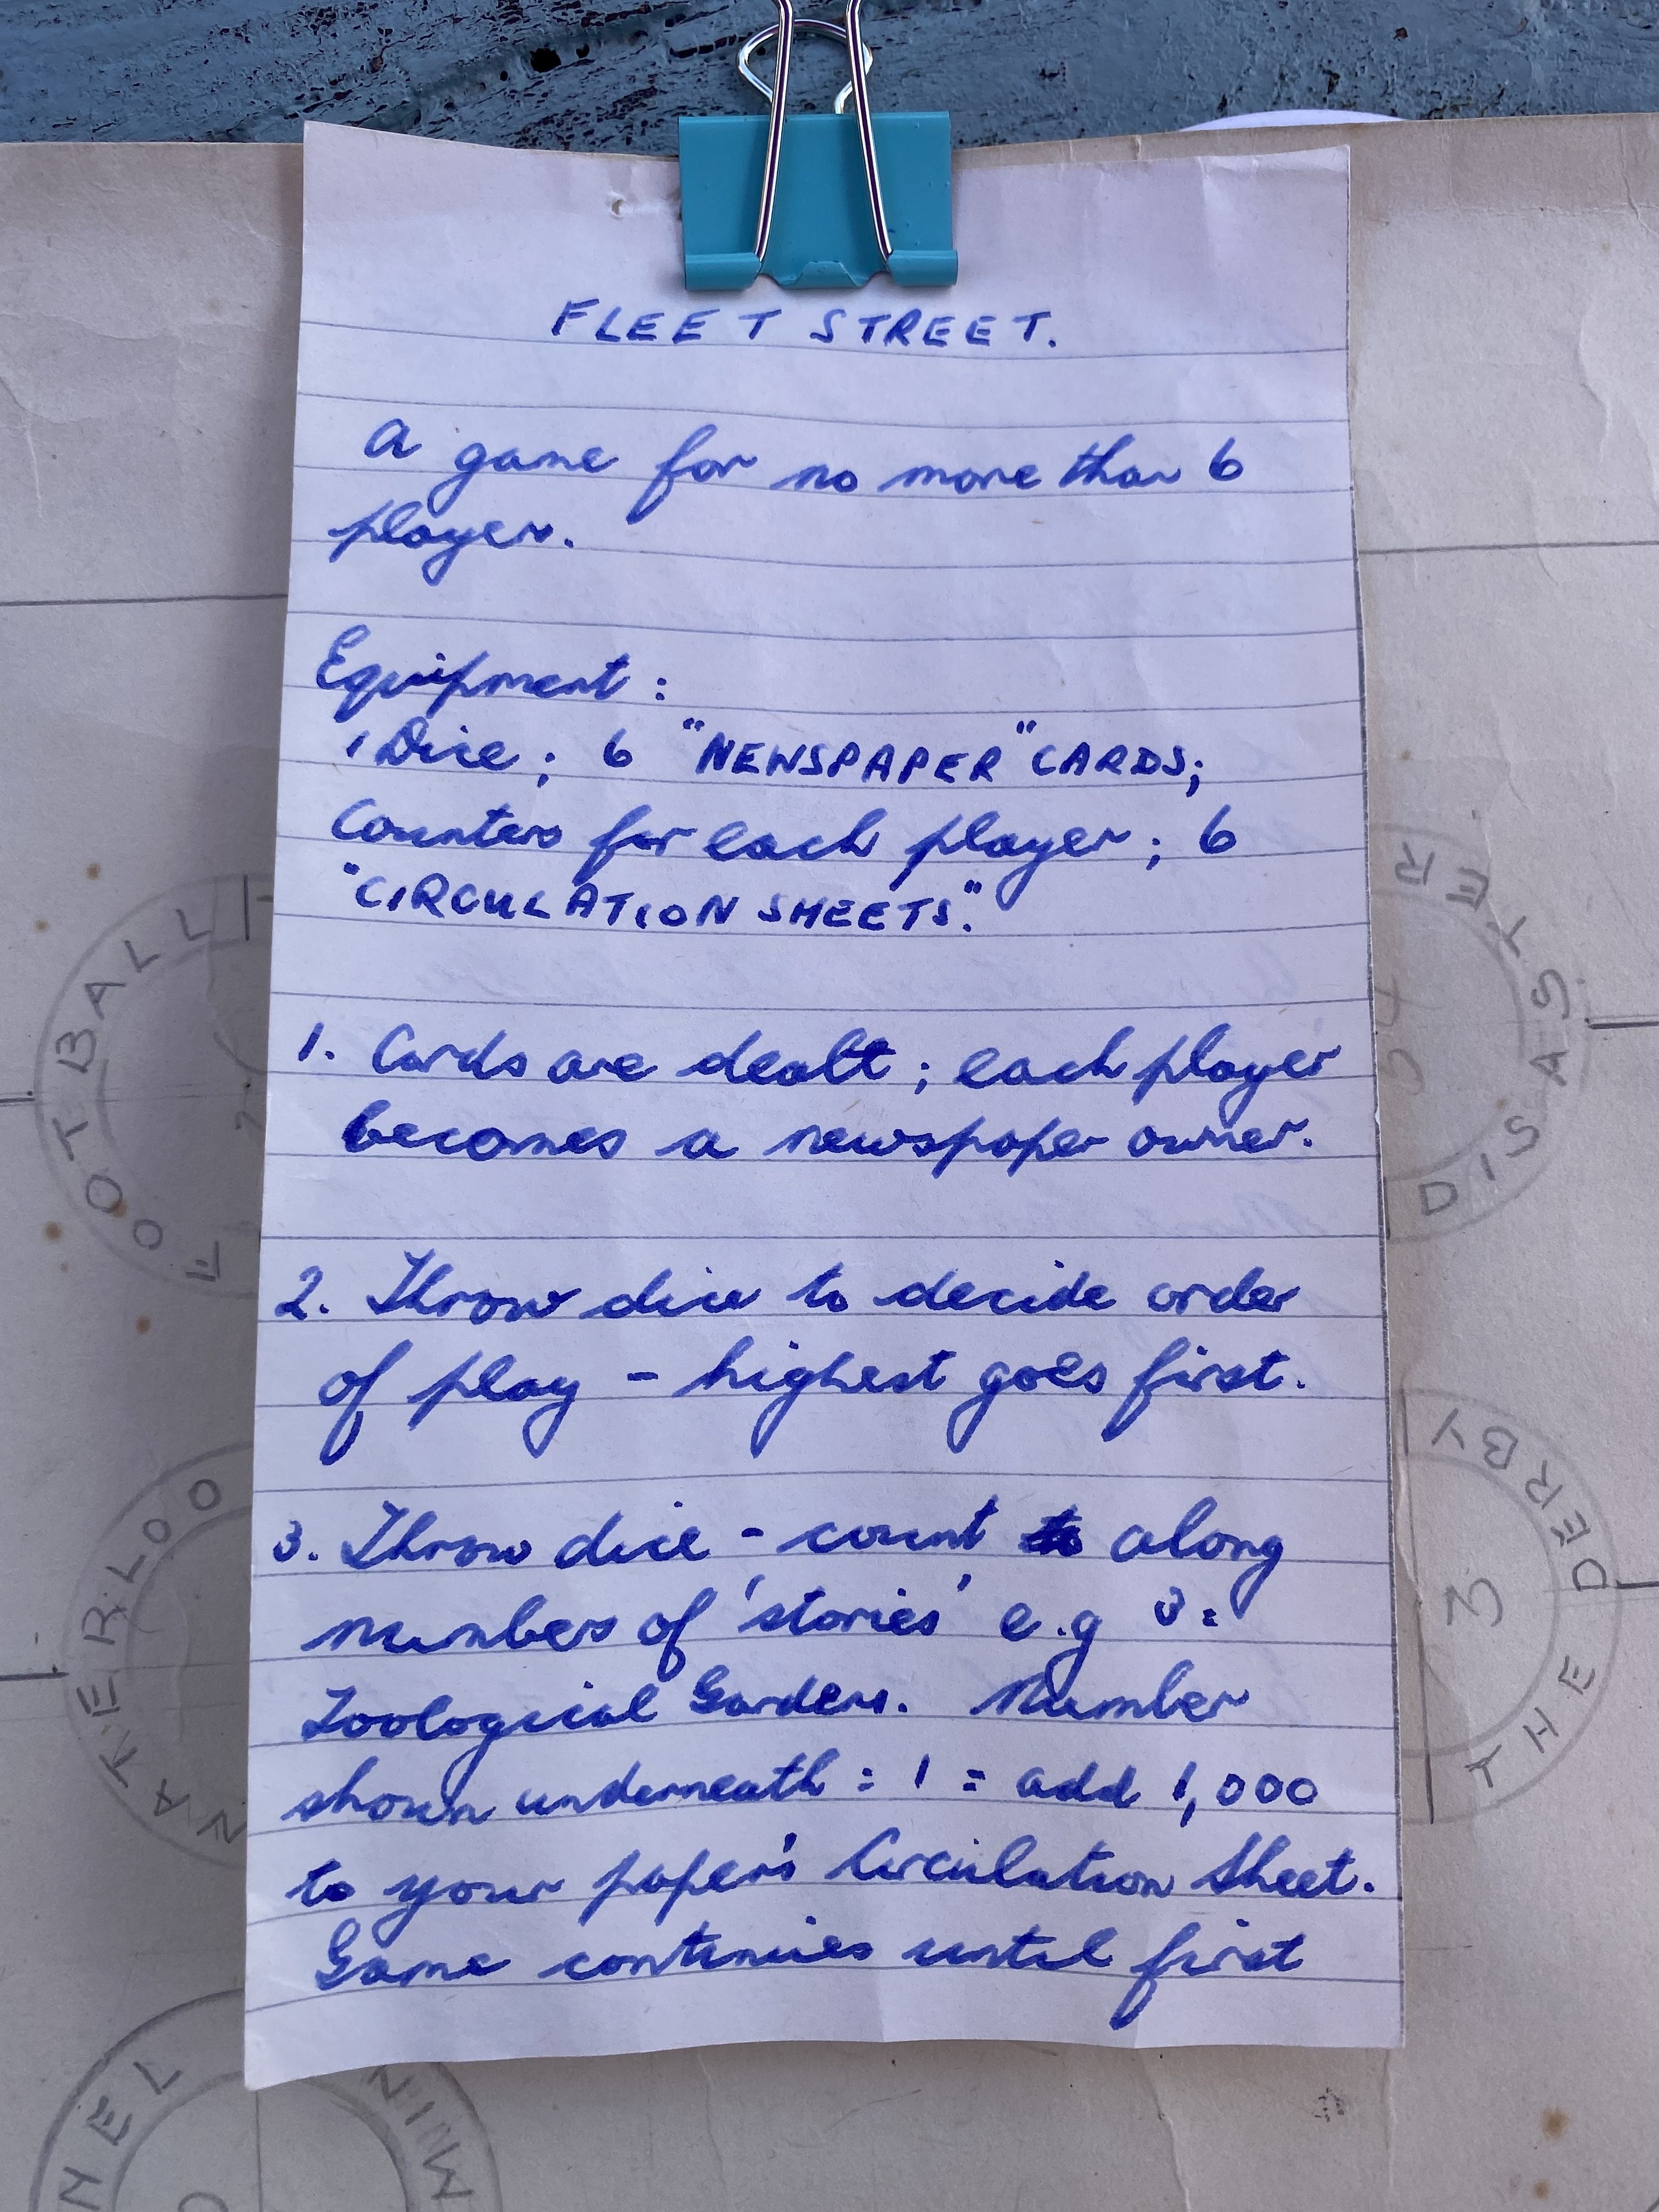 FLEET STREET.
A game for no more than 6
player.
Equipment :
1 Dice ; 6 "NEWSPAPER" CARDS;
Counters for each player ; 6
"CIRCULATION SHEETS".
1. Cards are dealt ; each player
becomes a newspaper owner.
2. Throw dice to decide order
of play - highest goes first.
3. Throw dice - count along
numbers of 'stories' e.g 3 =
Zoological Gardens. Number
shown underneath : 1 = add 1,000
to your paper's Circulation Sheet.
Game continues until first
FOOTBALL
DISASTER
WATERLOO
THE DERBY
3
NEL
MIN